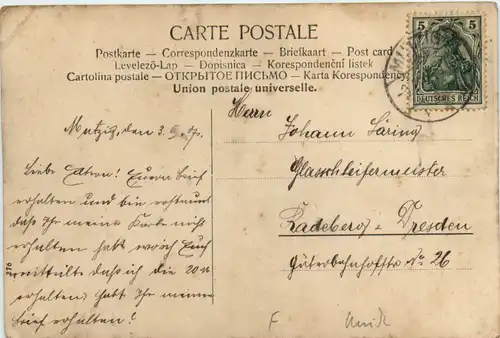 CARTE POSTALE
Postkarte — Correspondenzkarte — Briefkaart — Post card
Levelező-Lap — Dopisnica — Korespondenční listek
Cartolina postale — ОТКРЫТОЕ ПИСЬМО — Karta Korespondency
Union postale universelle.
5 5
DEUTSCHES REICH
Mutzig, den 3.
Liebe Eltern! Euern Brief
erhalten und bin erstaunt
dass Ihr meine Karte nicht
erhalten habt Euch
mittéilte dass ich die 20
erhalten, habt Ihr meinen
brief erhalten!
Herrn
Johann Säring
Glasschleifermeister
Radeberg - Dresden
Güterbahnhofstr No 26
276
F